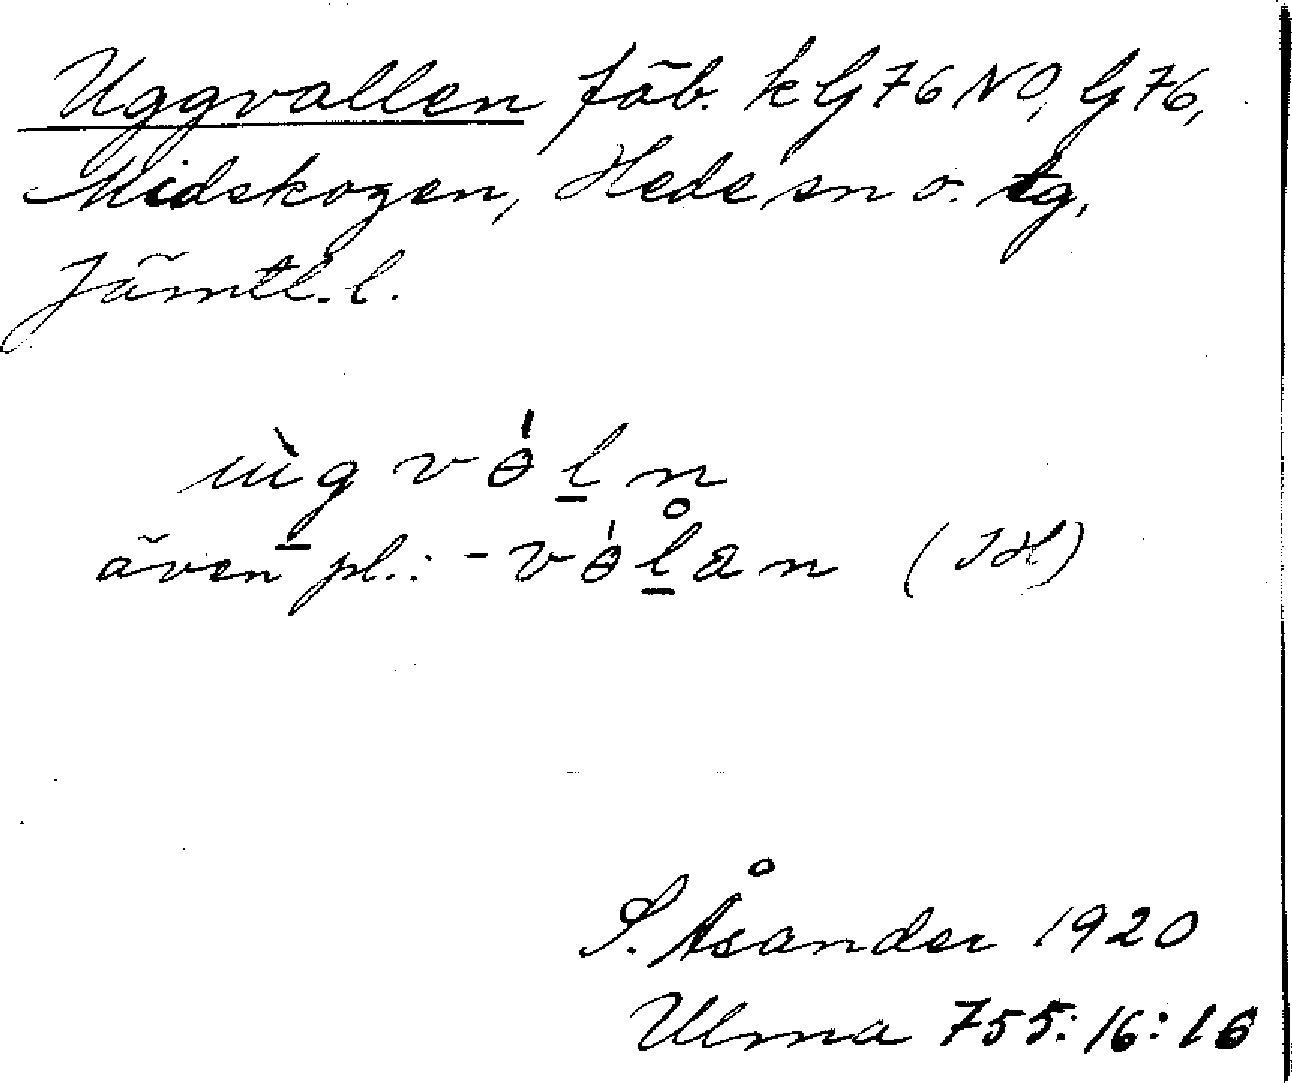 Uggvallen fäb. k G 76 NO, G 76,
Midskogen, Hede sn o. tg,
Jämtl. l.
ùg vɵ́l̲n
även pl.: -vɵ́l̲an (JH)
S. Åsander 1920
Ulma 755:16:16